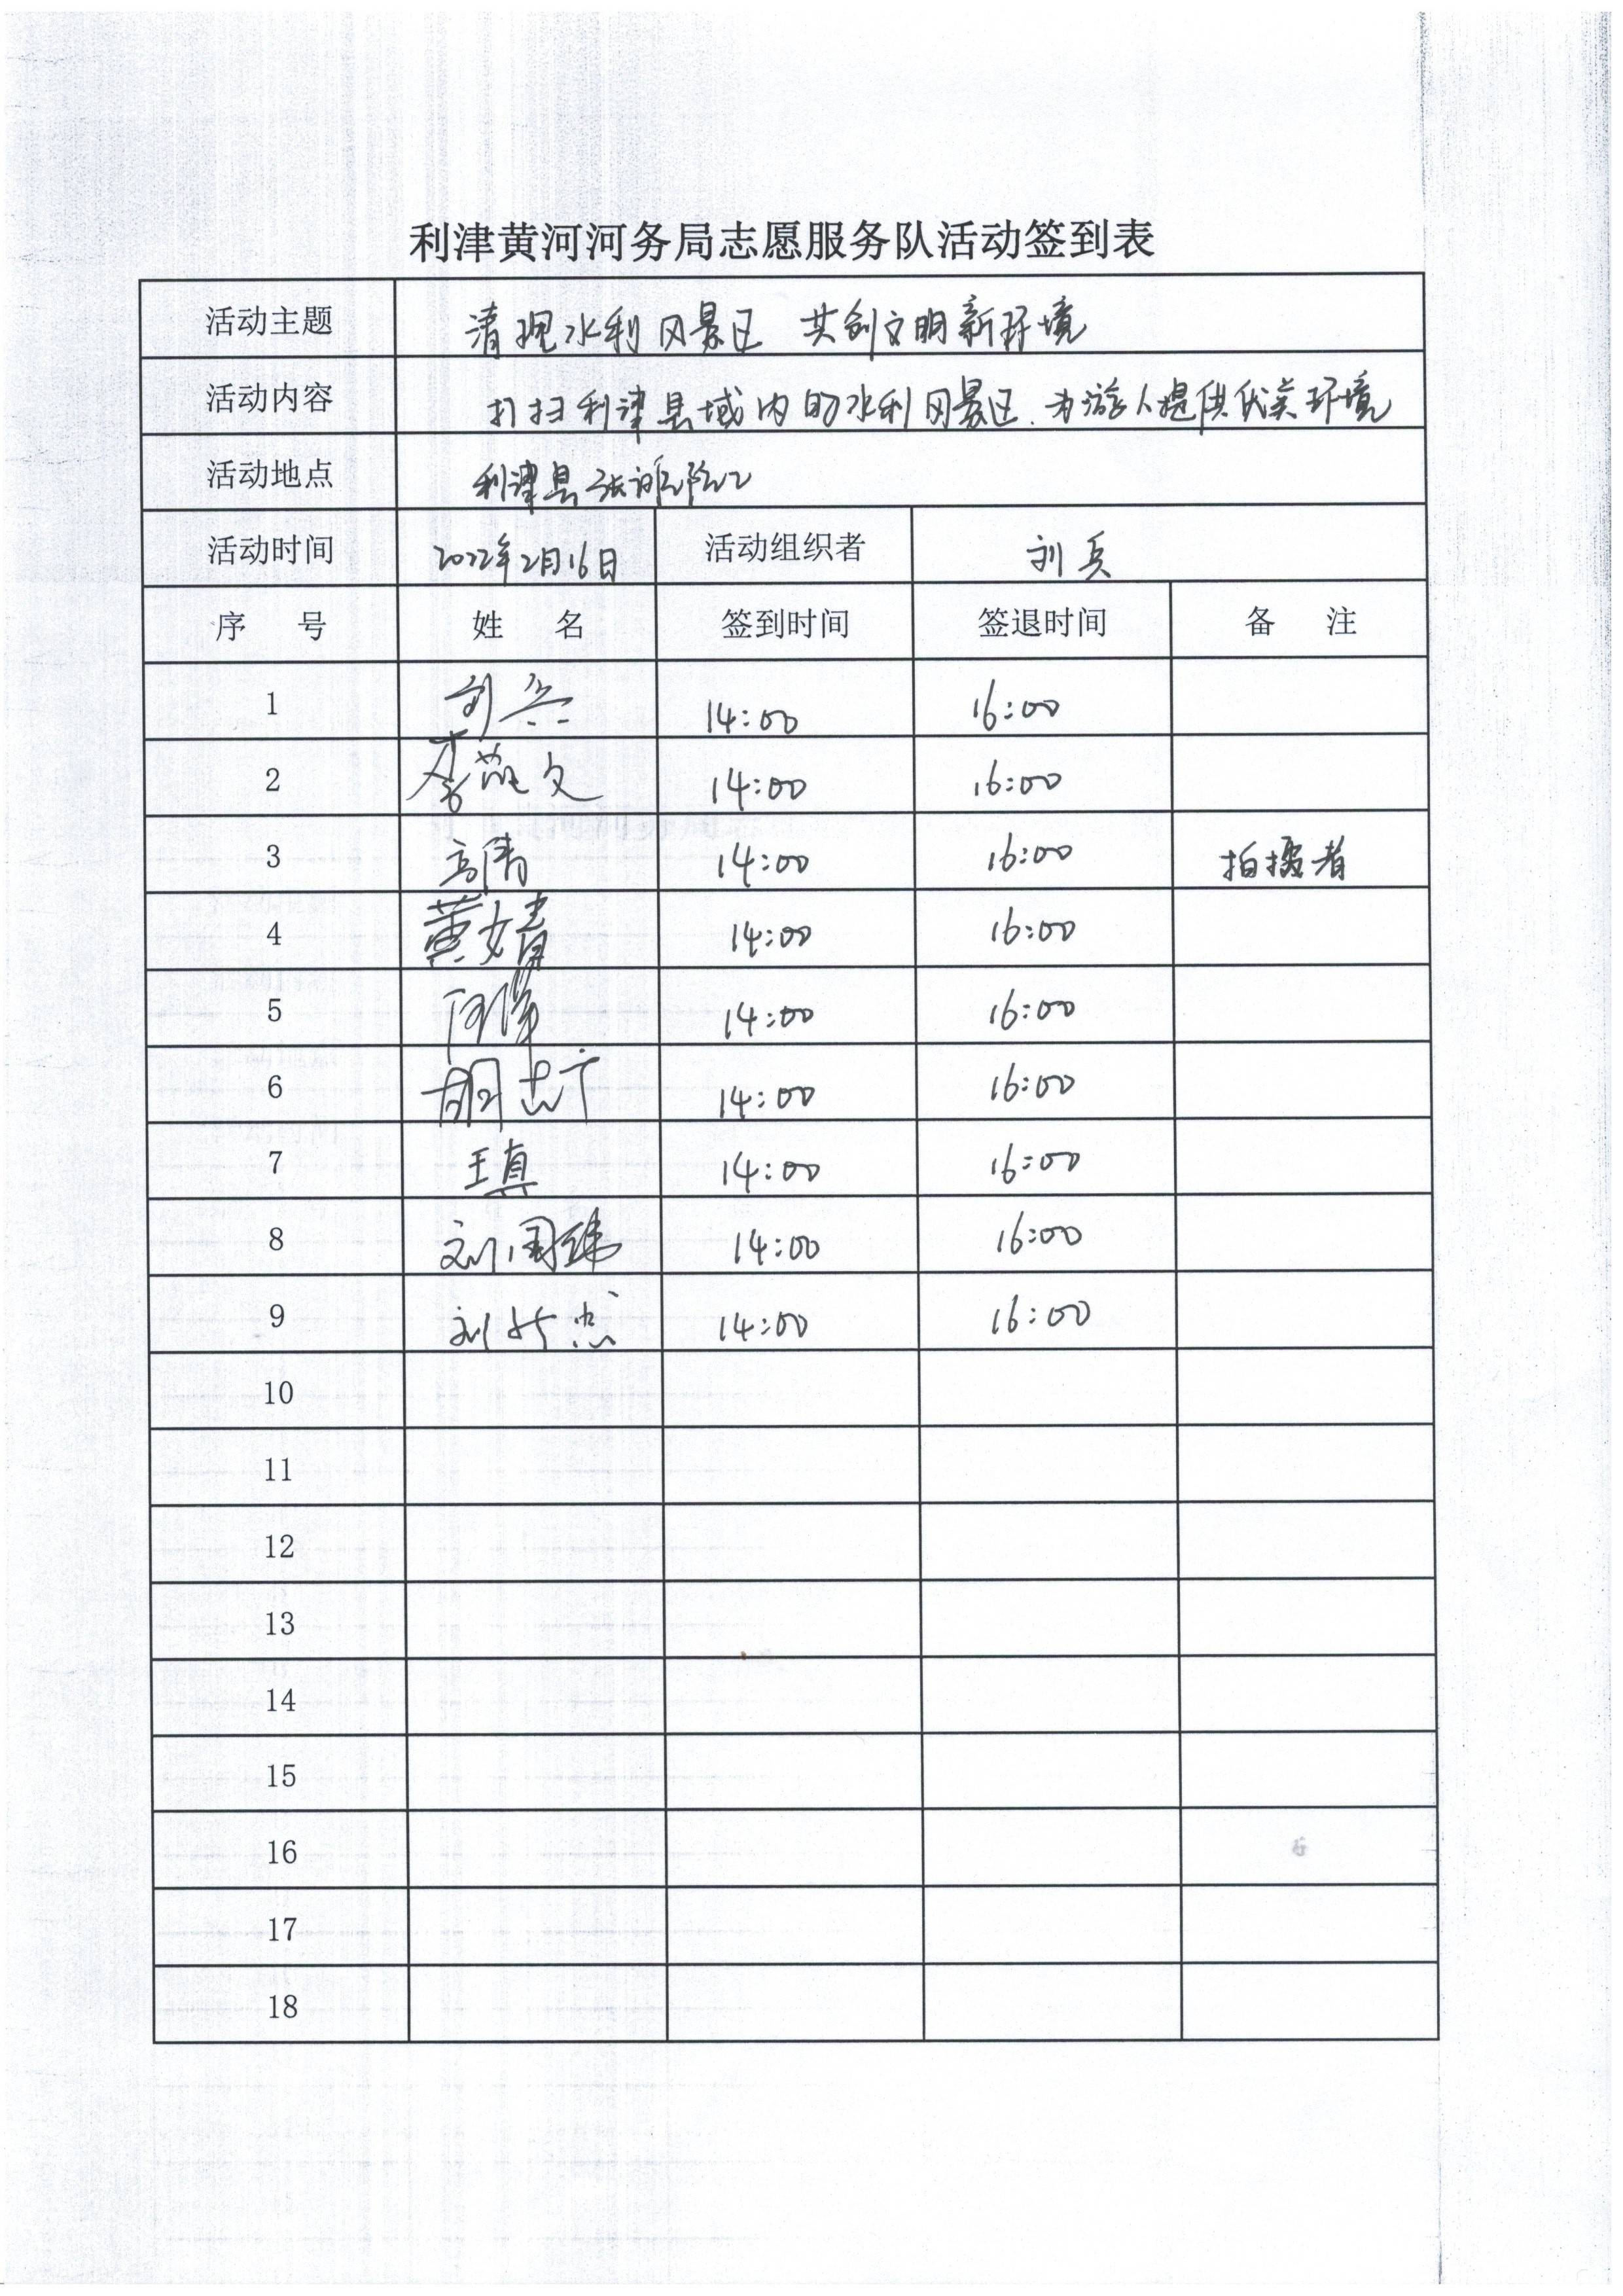 利津黄河河务局志愿服务队活动签到表
活动主题 清理水利风景区 共创文明新环境
活动内容 打扫利津县域内的水利风景区，为游人提供优美环境
活动地点 利津县张滩险工
活动时间 2022年2月16日 活动组织者 刘兵
序 号 姓 名 签到时间 签退时间 备 注
1 刘兵 14:00 16:00
2 李敬文 14:00 16:00
3 高倩 14:00 16:00 拍摄者
4 黄婧 14:00 16:00
5 14:00 16:00
6 胡志广 14:00 16:00
7 王真 14:00 16:00
8 刘国纬 14:00 16:00
9 刘 忠 14:00 16:00
10
11
12
13
14
15
16
17
18